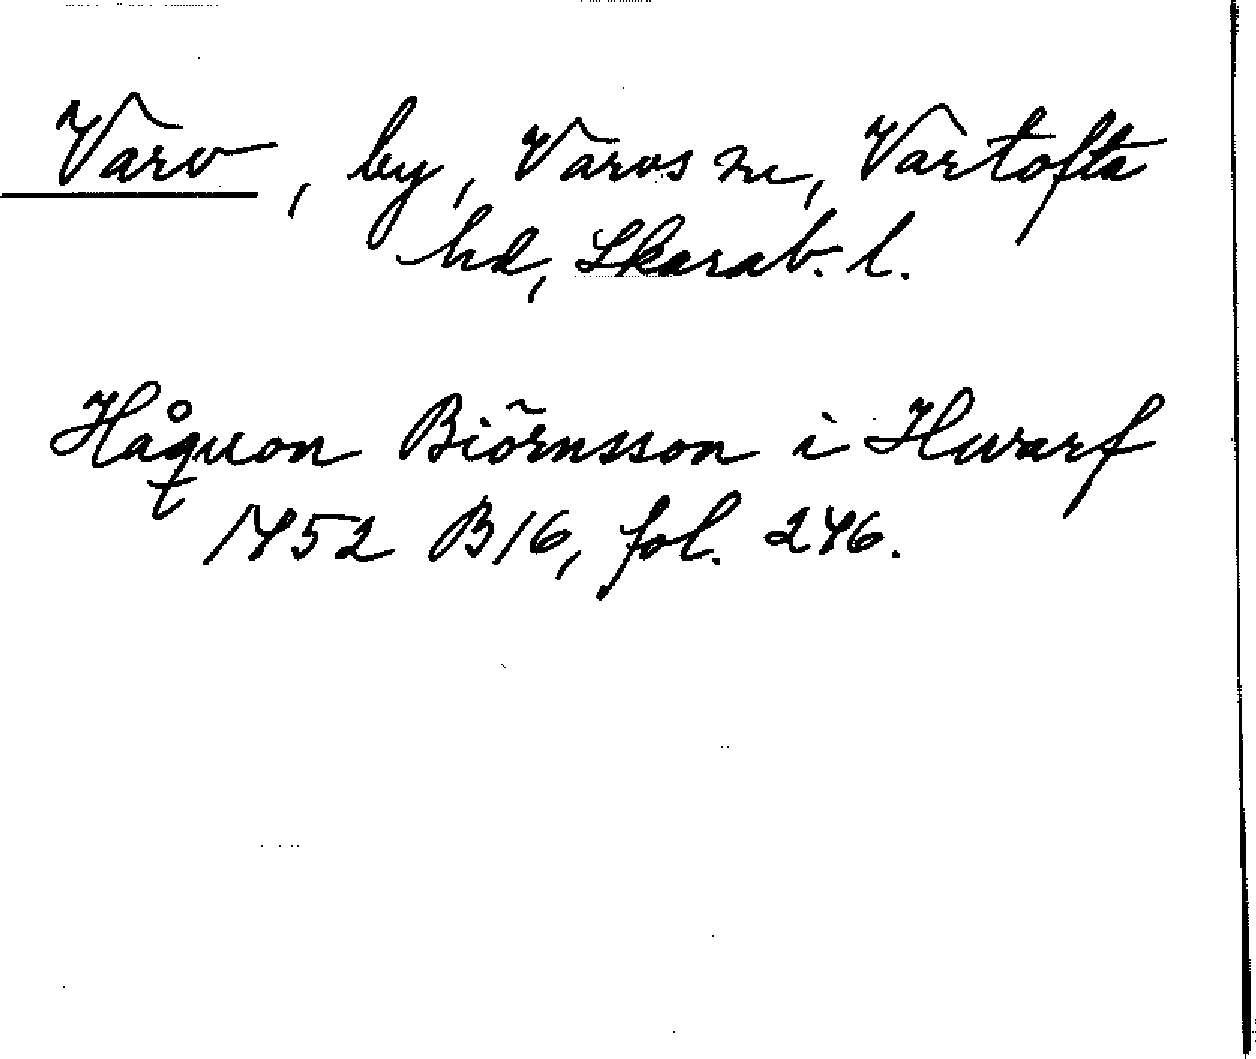 Varv, by, Varvs sn, Vartofta
hd, Skarab. l.
Håquon Biörnsson i Hwarf
1452 B16, fol. 246.